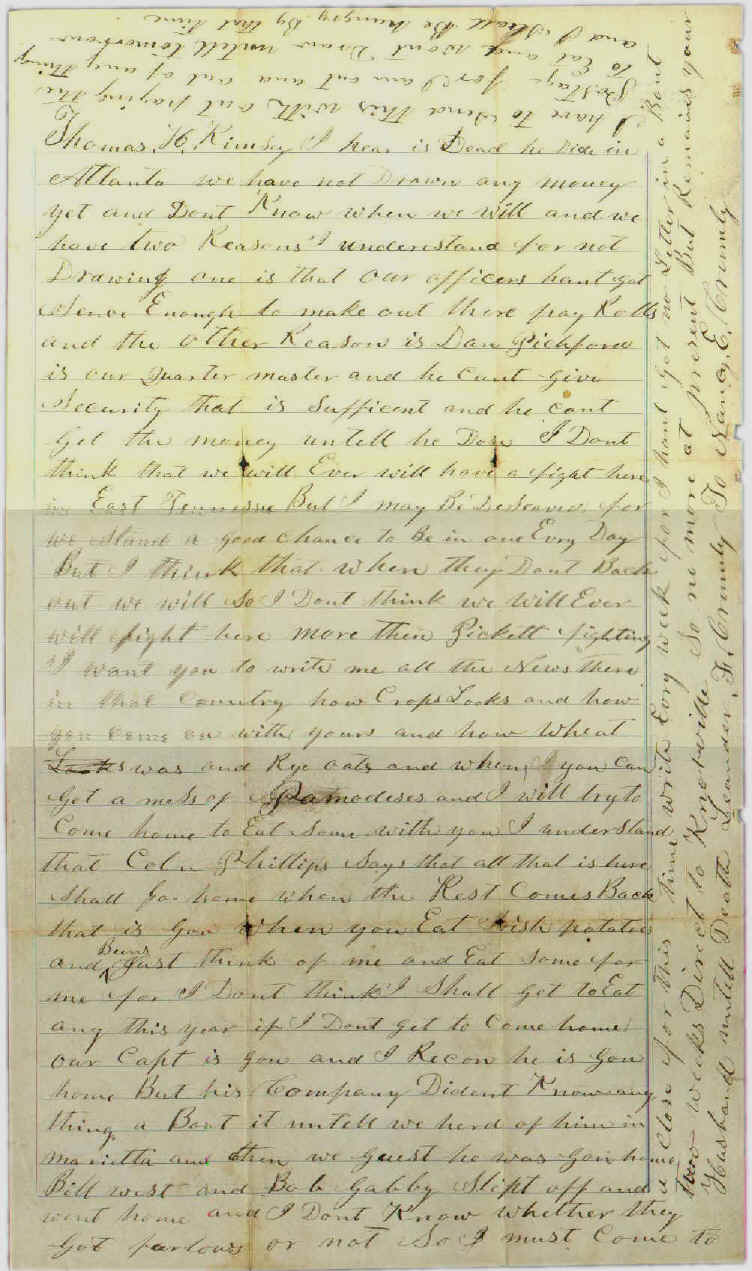 Thomas, H, Kimsey I hear is Dead he Dide in
Atlanta we have not Drawn any money
yet and Dont Know when we will and we
have two Reasons I understand for not
Drawing one is that our officers hant got
Sence Enough to make out there pay Rolls
and the other Reason is Dan Pickford
is our Quarter master and he cant give
Security that is Sufficent and he cant
get the money untell he Dose I Dont
think that we will Ever will have a fight here
in East Tennessee But I may Be Deseaved for
we Stand a good chance to Be in one Evry Day
But I think that when they Dont Back
out we will So I Dont think we will Ever
will fight here more then Pickett fighting
I want you to write me all the News there
in that Country how Crops Looks and how
you come on with yours and how wheat
was and Rye oats and when you can
get a mess of and I will try to
Come home to Eat Some with you I understand
that Coln Phillips Says that all that is here
Shall go home when the Rest Comes Back
that is gon when you Eat Irish potatoes
and Beans Just think of me and Eat Some for
me for I Dont think I Shall get to Eat
any this year if I Dont get to Come home
our Capt is gon and I Recon he is gon
home But his Company Dident Know any
thing a Bout it untell we herd of him in
marietta and then we guest he was gon home
Bill west and Bob Gabby Slipt off and
went home and I Dont Know whether they
got furlows or not So I must Come to
a Close for this time write Evry week for I hant got no Letter in a Bout
two weeks Direct to Knoxville So no more at present But Remains your
Husband untell Death Leander, F, Crumly To Nancy, E, Crumly
I have to Send this with out paying the
Postage for I am out and out of any thing
To Eat and wont Draw untell tomorrow
and I Shall Be hungry By that time